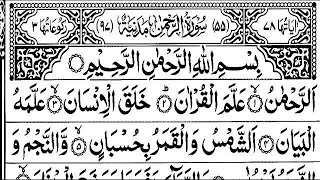 اٰیَاتُهَا ٧٨ (٥٥) سُوْرَةُ الرَّحْمٰنِ مَدَنِیَّةٌ (٩٧) رُكُوْعَاتُهَا ٣
بِسْمِ اللّٰهِ الرَّحْمٰنِ الرَّحِیْمِ
اَلرَّحْمٰنُ ۙ﴿١﴾ عَلَّمَ الْقُرْاٰنَ ؕ﴿٢﴾ خَلَقَ الْاِنْسَانَ ۙ﴿٣﴾ عَلَّمَهُ
الْبَیَانَ ﴿٤﴾ اَلشَّمْسُ وَ الْقَمَرُ بِحُسْبَانٍ ۪﴿٥﴾ وَّ النَّجْمُ وَ